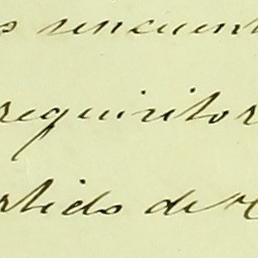 s sencuent
requisitor
rtido de